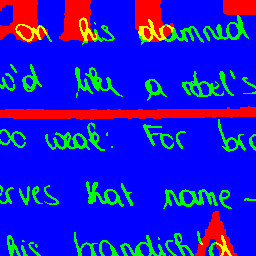 on his damned
w'd like a rebel's
oo weak: For bra
erves that name -
his brandish'd